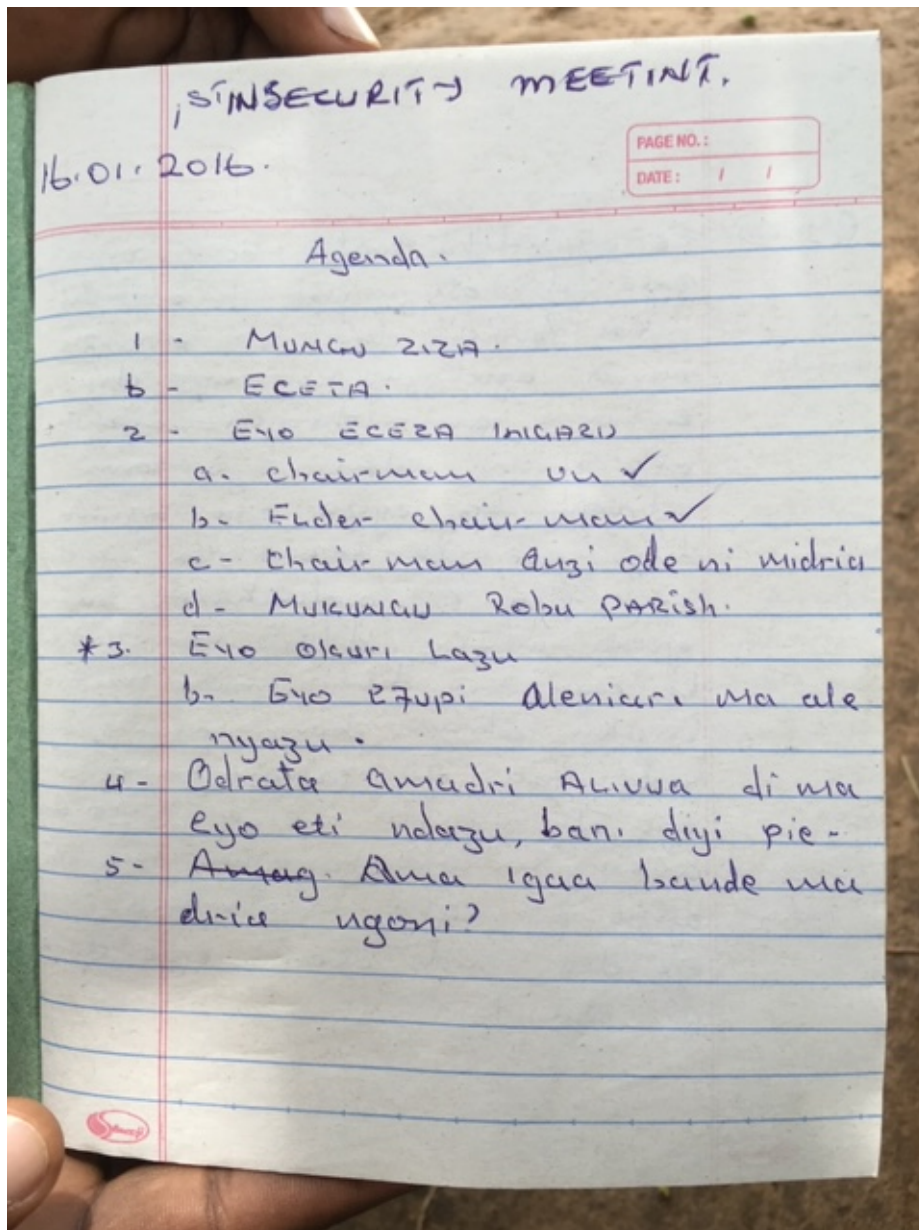 1ST INSECURITY MEETING.
PAGE NO.:
16.01.2016.
DATE: / /
Agenda.
1 - MUNGU ZIZA.
b - ECETA.
2 - EYO ECEZA INIGARU
a. chairman VU ✓
b- Ender chair-man ✓
c- Chairman auzi ode ni midria
d- MUKUNGU Robu PARISH.
*3. EYO Okuri Lazu
b- Eyo ezupi aleniari ma ale
nyazu.
4- Odrata amadri ALIVVA di ma
eyo eti ndazu, bani diyi pie-
5- Amag. Ama igaa bande ma
dria ngoni?